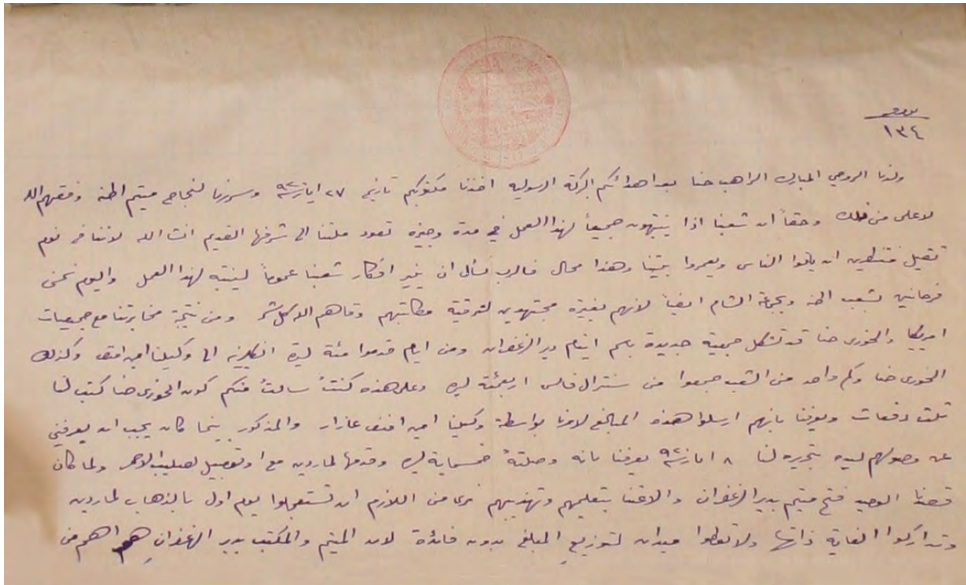 عدد
١٣٤
ولدنا الروحي المبارك الراهب حنا بعد اهدائكم البركة الرسولية اخذنا مكتوبكم تاريخ ٢٧ ايار ٩٢٠ وسررنا لنجاح ميتم اطنه وفقهم الله
لاعلى من ذلك وحقاً ان شعبنا اذا ينتبهون جميعاً لهذا العمل في مدة وجيزة تعود ملتنا الى شرفها القديم انشا الله لاننا في نوم
ثقيل منتظرين ان ياتوا الناس ويعمروا بيتنا وهذا محال فالرب نسأل ان ينير افكار شعبنا عموماً لينتبه لهذا العمل واليوم نحن
فرحانين بشعب اطنه وبجماعة الشام ايضاً لانهم بغيرة مجتهدين لترقية مكاتبهم وقاهم الله كل شر ومن نتيجة مخابرتنا مع جمعيات
امريكا والخوري حنا قد تشكل جمعية جديدة باسم ايتام دير الزعفران ومن ايام قدموا مئة ليرة انكليزية الى وكيلنا امين افندي وكذلك
الخوري حنا وكم واحد من الشعب جمعوا من سنترال فالس اربعمئة ليره وعلى هذه كنتُ سالتُ منكم كون الخوري حنا كتب لنا
ثلث دفعات ويعرفنا بانهم ارسلوا هذه المبالغ لاورفا بواسطة وكيلنا امين افندي عازار والمذكور بينما كان يجب ان يعرفني
عن وصولهم ليده بتحريره لنا ٨ ايار ٩٢٠ يعرفنا بانه وصلتهُ خمسماية ليره وقدمها لماردين مع اوتومبيل لصليب الاحمر ولما كان
قصدنا الوحيد فتح ميتم بدير الزعفران والاعتنا بتعليمهم وتهذيبهم نرى من اللازم ان تستعجلوا يوم اول بالذهاب لماردين
وتداركوا الغاية ذاتها ولا تعطوا ميدان لتوزيع المبلغ بدون فائدة لان الميتم والمكتب بدير الزعفران هم اهم من